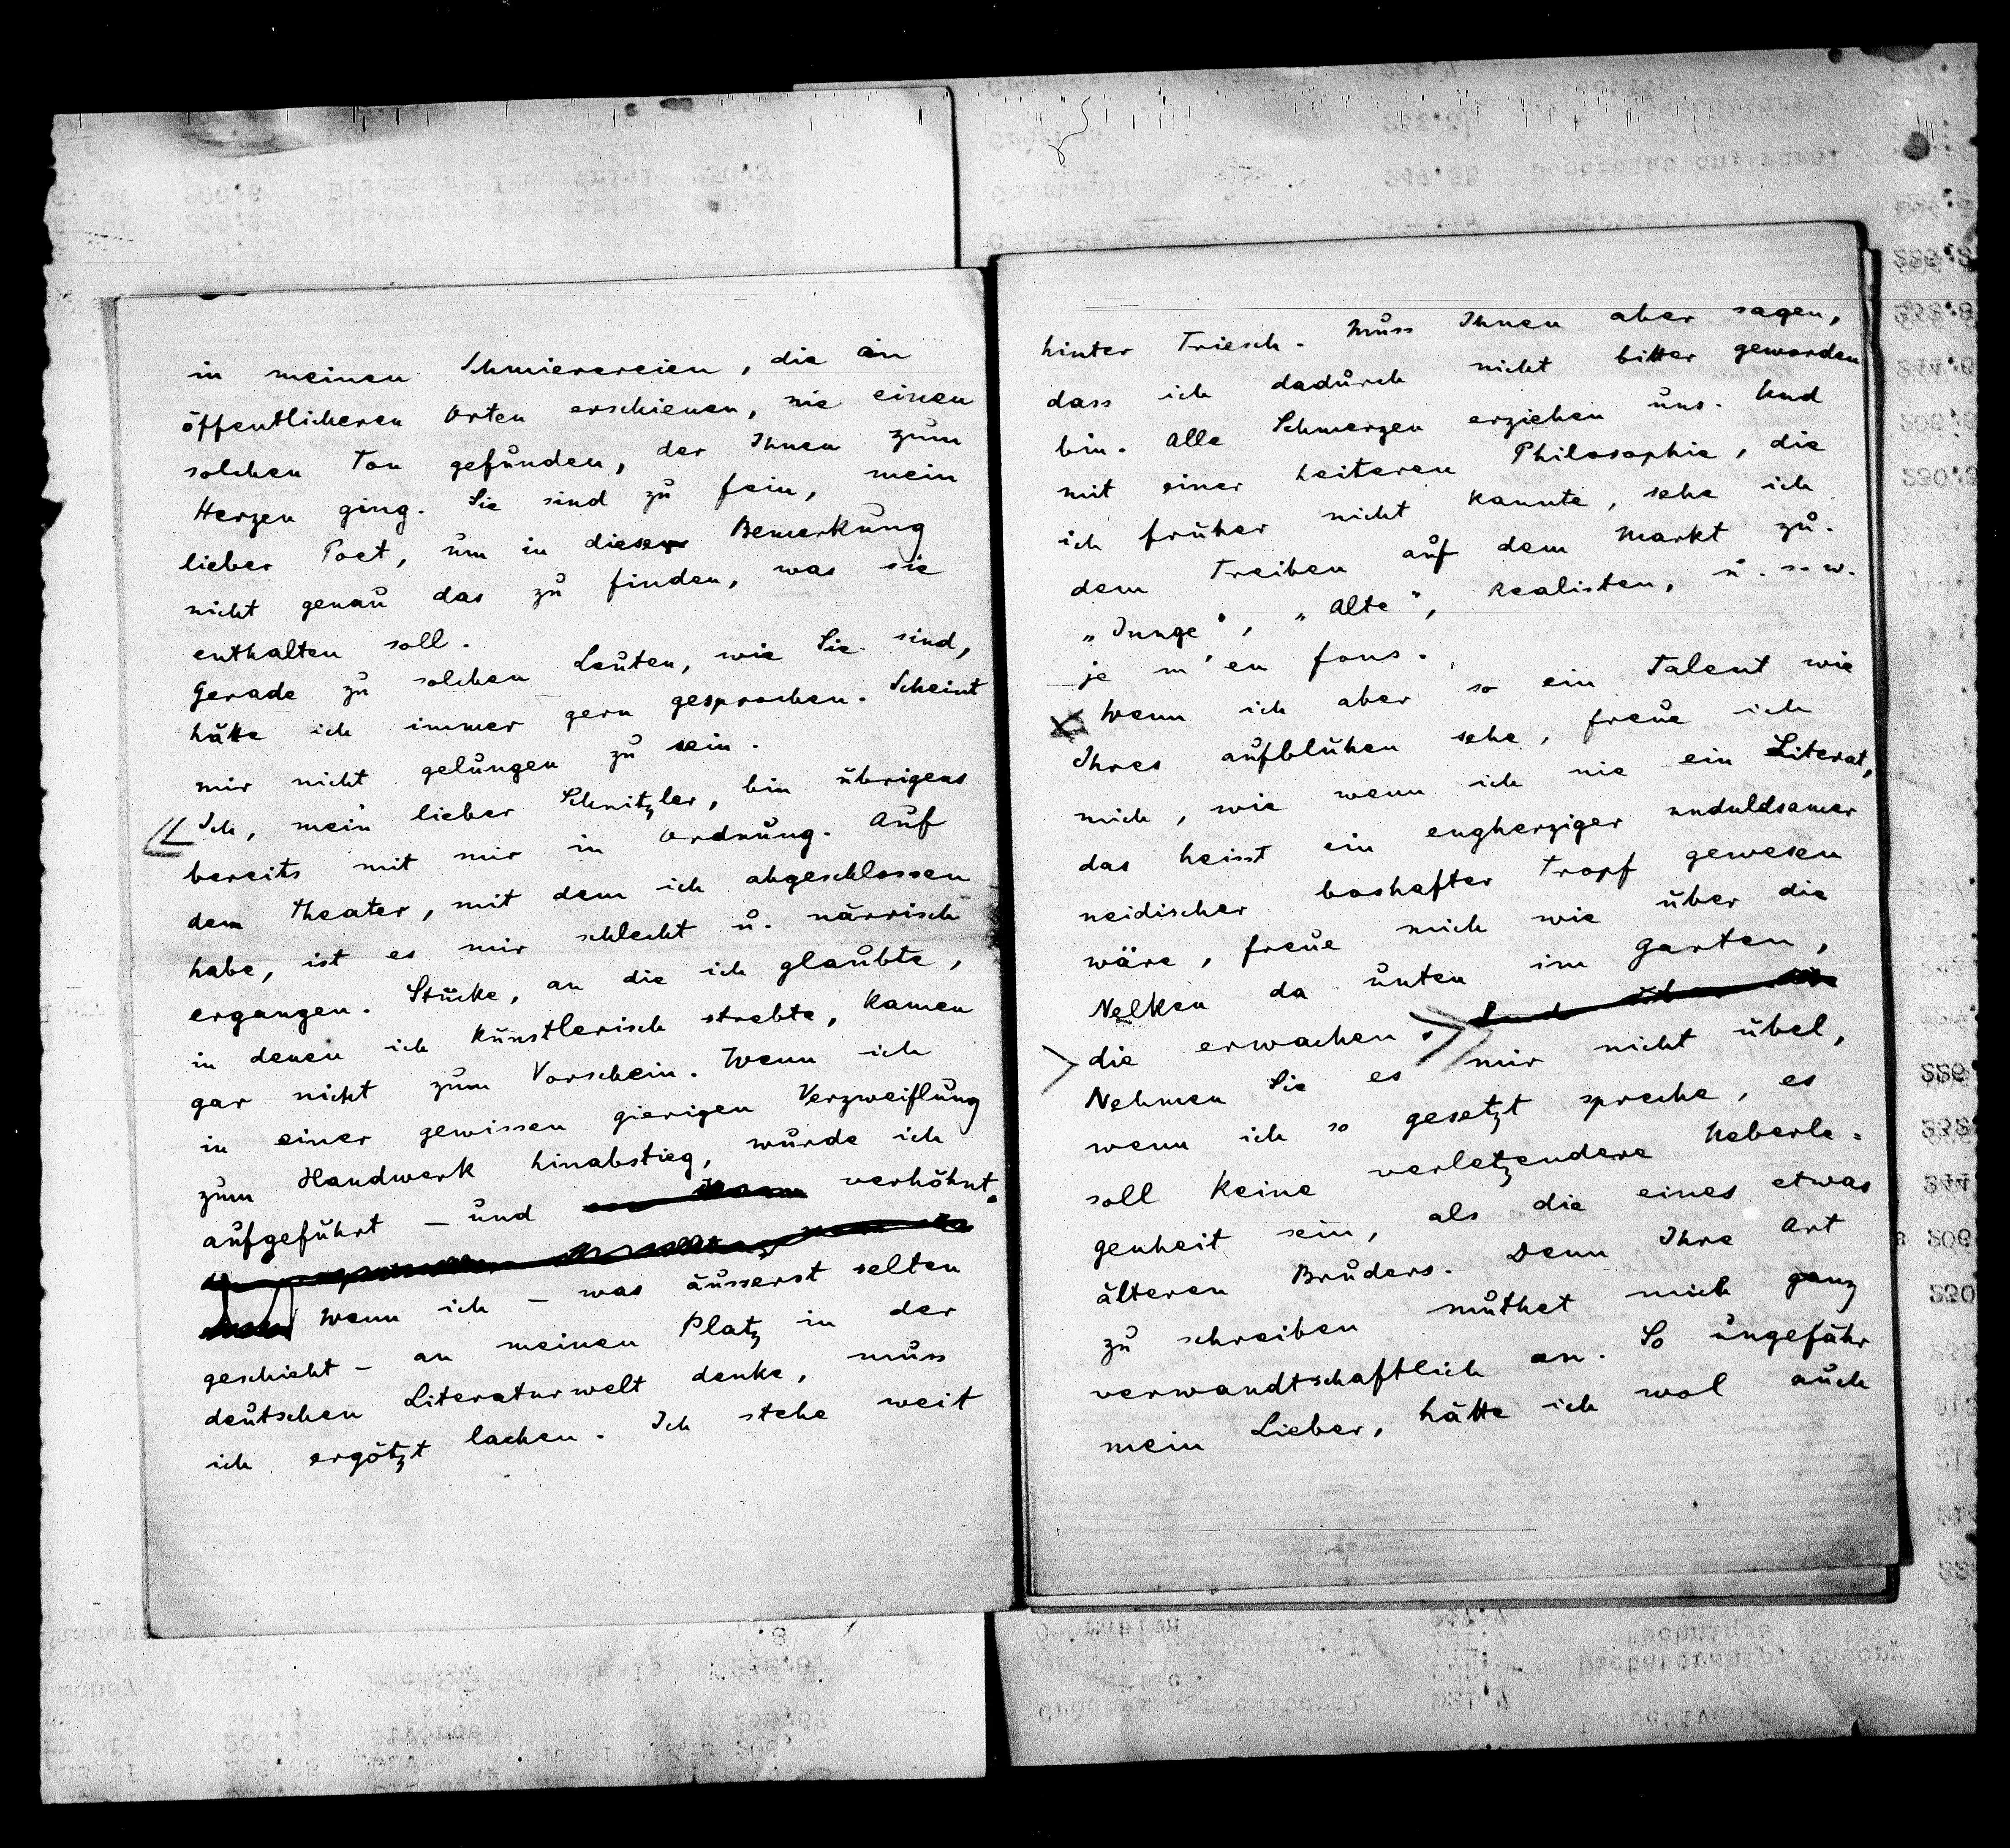 in meinen Schmierereien, die an
öffentlicheren Orten erschienen, nie einen
solchen Ton gefunden, der Ihnen zum
Herzen ging. Sie sind zu fein, mein
lieber Poet, um in dieser Bemerkung
nicht genau das zu finden, was sie
enthalten soll.
Gerade zu solchen Leuten, wie Sie sind,
hätte ich immer gern gesprochen. Scheint
mir nicht gelungen zu sein.
Ich, mein lieber Schnitzler, bin übrigens
bereits mit mir in Ordnung. Auf
dem Theater, mit dem ich abgeschlossen
habe, ist es mir schlecht u. närrisch
ergangen. Stücke, an die ich glaubte,
in denen ich künstlerisch strebte, kamen
gar nicht zum Vorschein. Wenn ich
in einer gewissen gierigen Verzweiflung
zum Handwerk hinabstieg, wurde ich
aufgeführt – und verhöhnt.
Wenn ich – was äusserst selten
geschieht – an meinen Platz in der
deutschen Literaturwelt denke, muss
ich ergötzt lachen. Ich stehe weit
hinter Triesch. Muss Ihnen aber sagen,
dass ich dadurch nicht bitter geworden
bin. Alle Schmerzen erziehen uns. Und
mit einer heiteren Philosophie, die
ich früher nicht kannte, sehe ich
dem Treiben auf dem Markt zu.
„Junge", „Alte", Realisten, u. s. w.
je m'en fous.
Wenn ich aber so ein Talent wie
Ihres aufblühen sehe, freue ich
mich, wie wenn ich nie ein Literat,
das heisst ein engherziger unduldsamer
neidischer boshafter Tropf gewesen
wäre, freue mich wie über die
Nelken da unten im Garten,
die erwachen.
Nehmen Sie es mir nicht übel,
wenn ich so gesetzt spreche, es
soll keine verletzendere Ueberle-
genheit sein, als die eines etwas
älteren Bruders. Denn Ihre Art
zu schreiben muthet mich ganz
verwandtschaftlich an. So ungefähr
mein Lieber, hätte ich wol auch